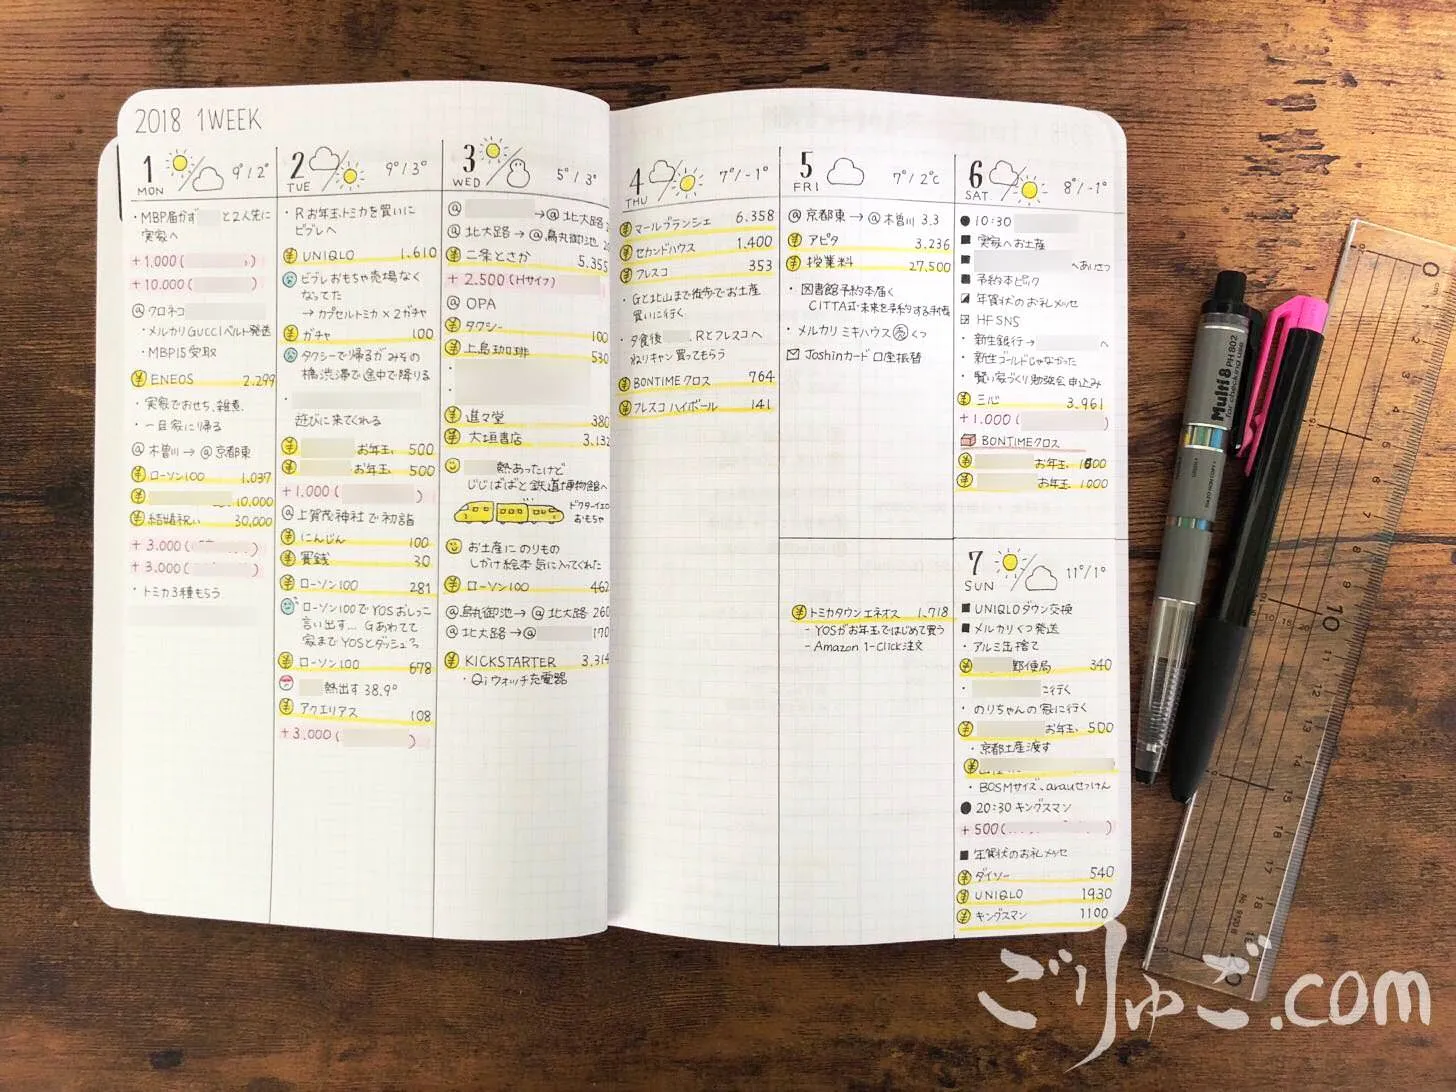 2018 1WEEK
1 MON 9°/2°
・MBP届かず と2人先に
実家へ
+1.000 ( )
+10.000 ( )
@クロネコ
・メルカリGUCCIベルト発送
・MBP15受取
¥ ENEOS 2.299
・実家でおせち、雑煮.
・一旦家に帰る
@木曽川→@京都東
¥ローソン100 1.037
¥ 10,000
¥結婚祝い 30,000
+3.000 ( )
+3.000 ( )
・トミカ3種もらう
2 TUE 9°/3°
・Rお年玉トミカを買いに
ビブレへ
¥ UNIQLO 1.610
ビブレおもちゃ売場なく
なってた
→カプセルトミカ×2ガチャ
¥ガチャ 100
タクシーで帰るがみその
橋渋滞で途中で降りる
遊びに来てくれる
¥ お年玉 500
¥ お年玉 500
+1.000 ( )
@上賀茂神社で初詣
¥にんじん 100
¥賽銭 30
¥ローソン100 281
ローソン100でYOSおしっこ
言い出す… Gあわてて
家までYOSとダッシュ
¥ローソン100 678
熱出す 38.9°
¥アクエリアス 108
+3.000 ( )
3 WED 5°/3°
@ →@北大路
@北大路→@烏丸御池
¥二条とさか 5.355
+2.500 (Hサイフ)
@OPA
¥タクシー 100
¥上島珈琲 530
¥進々堂 380
¥大垣書店 3.132
熱あったけど
じじばばと鉄道博物館へ
ドクターイエロー
おもちゃ
お土産にのりもの
しかけ絵本 気に入ってくれた
¥ローソン100 462
@烏丸御池→@北大路 260
@北大路→@ 170
¥ KICKSTARTER 3.314
・Qiウォッチ充電器
4 THU 7°/-1°
¥マールブランシェ 6.358
¥セカンドハウス 1.400
¥フレスコ 353
・Gと北山まで徒歩でお土産
買いに行く
・夕食後 、Rとフレスコへ
ねりキャン買ってもらう
¥BONTIMEクロス 764
¥フレスコ ハイボール 141
5 FRI 7°/2℃
@京都東→@木曽川 3.3
¥アピタ 3.236
¥授業料 27,500
・図書館予約本届く
CITTA式・未来を予約する手帳
・メルカリ ミキハウス くつ
Joshinカード口座振替
¥トミカタウンエネオス 1,718
- YOSがお年玉ではじめて買う
- Amazon 1-Click注文
6 SAT 8°/-1°
●10:30
■実家へお土産
■ へあいさつ
■予約本ピック
年賀状のお礼メッセ
HF SNS
・新生銀行→ へ
・新生ゴールドじゃなかった
・賢い家づくり勉強会申込み
¥三心 3.961
+1.000 ( )
BONTIMEクロス
¥ お年玉 1000
¥ お年玉 1000
7 SUN 11°/1°
■UNIQLOダウン交換
■メルカリくつ発送
・アルミ缶捨て
¥ 郵便局 340
・ に行く
・のりちゃんの家に行く
¥ お年玉 500
・京都土産渡す
¥
・BOSMサイズ、arauせっけん
●20:30 キングスマン
+500 ( )
■年賀状のお礼メッセ
¥ダイソー 540
¥UNIQLO 1930
¥キングスマン 1100
Multi8 PH802
for checking use
ごりゅご.com